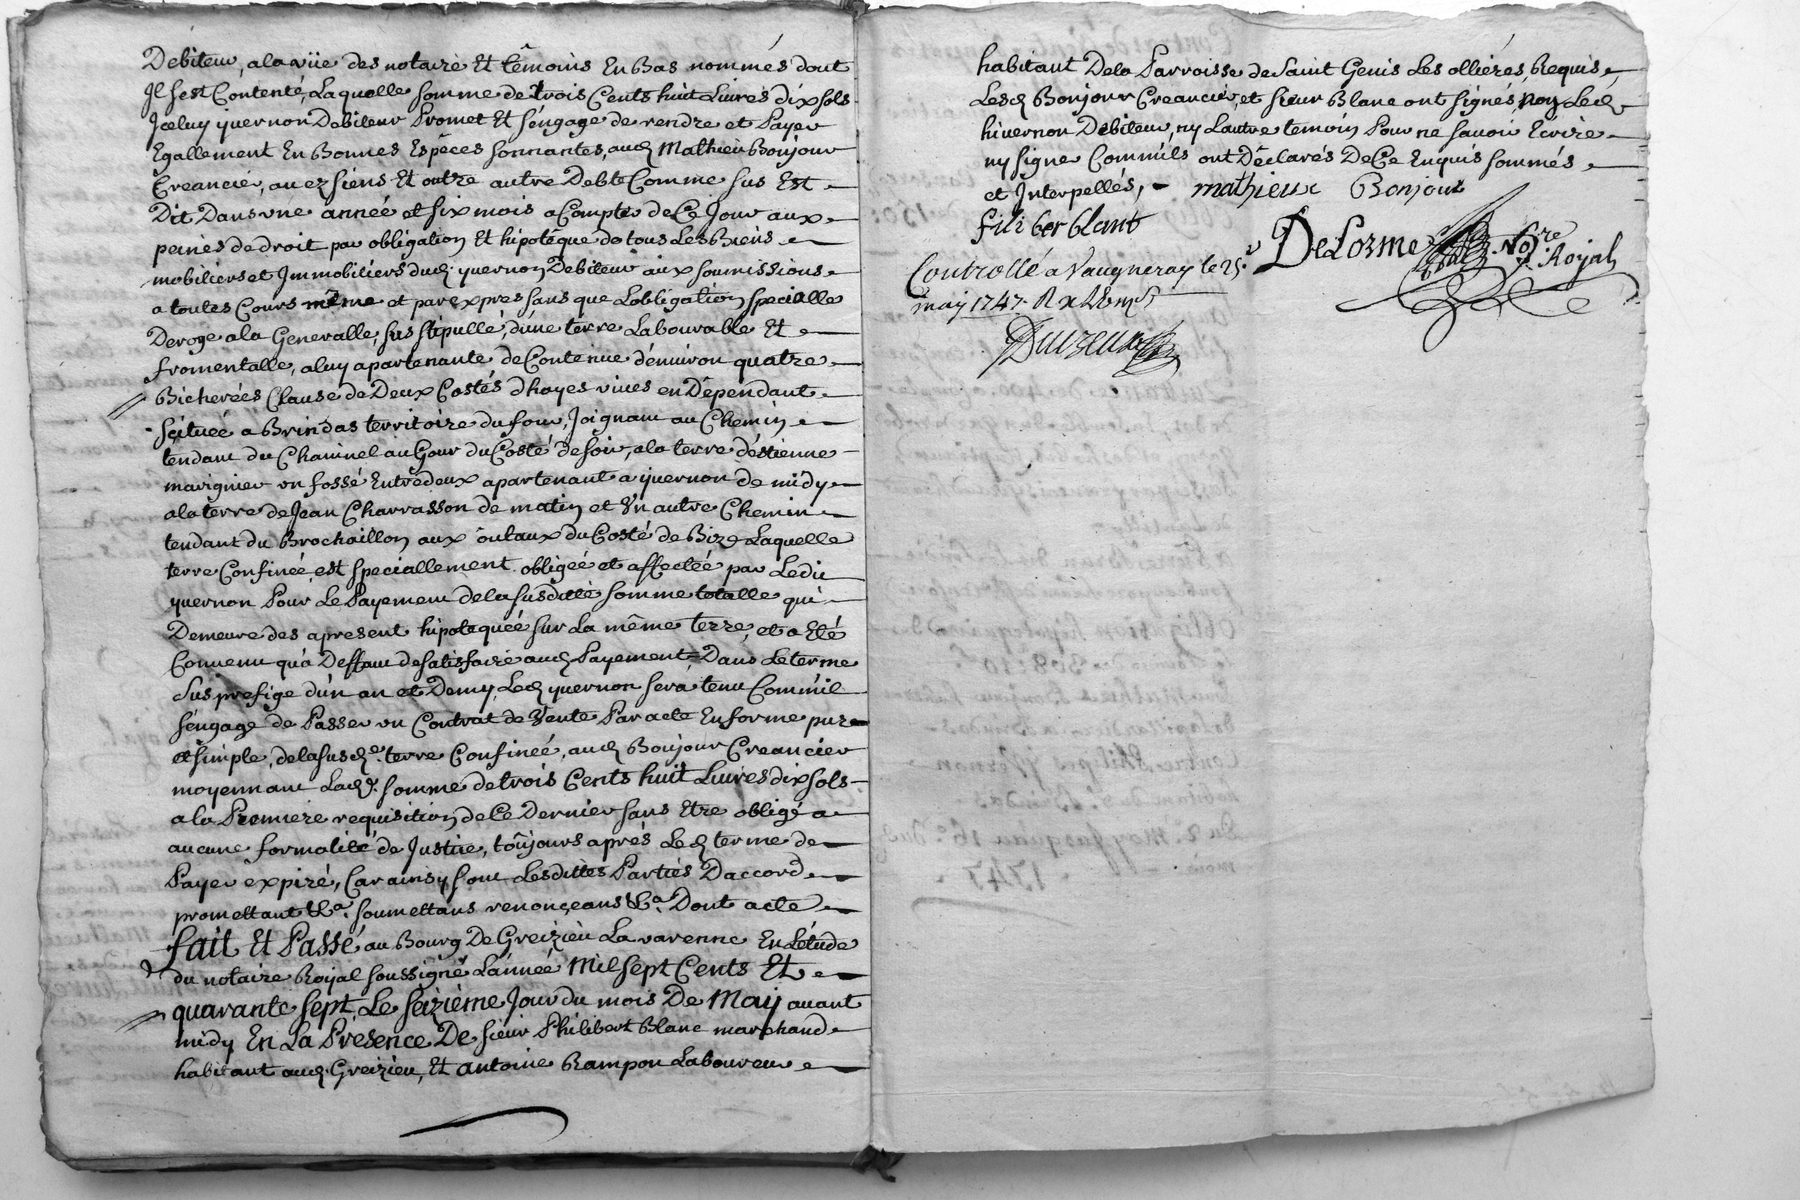 Debiteur, a la vüe des notaire Et têmoins En Bas nommés dont
Jl s'est Contenté, Laquelle somme de trois Cents huit Livres dix sols
Jceluy yvernon Debiteur Promet Et s'engage de rendre et Payer
Egallement En Bonnes Espêces sonnantes, aud. Mathieu Bonjour
Creancier, au ez siens Et outre autre Debte Comme sus Est
Dit Dans une année et six mois a Compter de Ce Jour aux
peines de droit par obligation Et hipotêque de tous Les Biens
mobiliers et Jmmobiliers dud. yvernon Debiteur aux soumissions
a toutes Cours même et par expres sans que Lobligation specialle
Deroge a la Generalle, sus stipullé, d'une terre Labourable Et
fromentalle, a luy apartenante de Contenue d'environ quatre
Bicherées Clause de Deux Costés d'hayes vives en Dêpendant
scituée a Brindas territoire du four, Joignant au Chemin
tendant du Chainel au Gour du Costé de soir, a la terre d'estienne
marignier un fossé Entredeux apartenant a yvernon de midy
a la terre de Jean Charrasson de matin et Un autre Chemin
tendant du Brochaillon aux ôutaux du Costé de Bize Laquelle
terre Confinée est speciallement obligée et affectée par Ledit
yvernon Pour Le Payement de la susditte somme totalle qui
Demeure des apresent hipotequée sur La même terre, et a Eté
Convenu qu'a Deffaut de satisfaire aud. Payement Dans Le terme
sus prefige d'un an et Demy, Led. yvernon sera tenu Comm'il
s'engage de Passer un Contrat de Vente Par acte En forme pure
et simple, de la susd.e terre Confineé, aud. Bonjour Creancier
moyennant Lad.e somme de trois Cents huit Livres dix sols
a la Premiere requisition de Ce Dernier sans Etre obligé a
aucune formalité de Justice, toûjours aprés Led. terme de
Payer expiré, Car ainsy sont Lesdittes Parties D'accord
promettant &a. soumettans renonçeans &a. Dont acte
fait Et Passé au Bourg De Greizieu La varenne En L'étude
du notaire Royal soussigné L'année Mil sept Cents Et
quarante sept Le seizième Jour du mois De May avant
midy En La Présence De sieur Philibert Blanc marchand
habitant aud. Greizieu, Et antoine Rampon Laboureur
habitant De la Parroisse de Saint Genis Les ollières, Requis
Lesd. Bonjour Creancier, et sieur Blanc ont signés non Led.
hivernon Débiteur, ny L'autre temoin Pour ne savoir Ecrire
ny signe Comm'ils ont Déclarés De Ce Enquis sommés
et Interpellés,
mathieux Bonjour
filiber blanc
DeLorme No.re Royal
Controllé a Vaugneray le 25.e
may 1747.